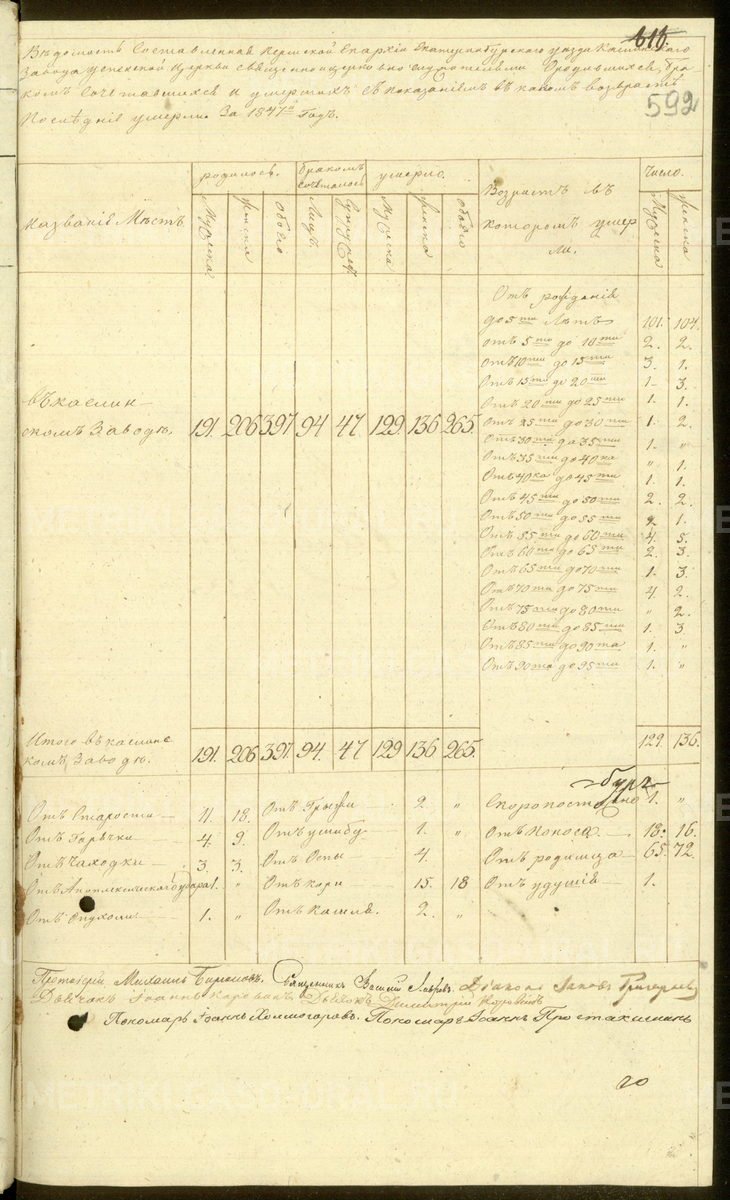 615.
592
Вѣдомость Составленная Пермской Епархіи Екатеринбургскаго уѣзда Каслинскаго
Завода Успенской Церкви священноцерковнослужителями О родившихся, бра
комъ Сочетавшихся и умершихъ съ показаніемъ въ какомъ возрастѣ
послѣдніе умерли. За 1847й Годъ.
Названіе Мѣстъ.
родилось.
бракомъ сочеталось
умерло.
Возрастъ въ которомъ умер ли.
Число.
Мужеска женска обоего Лицъ. Мужеска женска обоего Мужеска женска
Отъ рожденія
до 5ти Лѣтъ 101. 104.
отъ 5ти до 10ти 2. 2.
отъ 10ти до 15ти 3. 1.
Отъ 15ти до 20ти 1. 3.
Отъ 20ти до 25ти 1. 1.
Отъ 25ти до 30ти 1. 2.
Отъ 30ти до 35ти 1. "
Отъ 35ти до 40ка " 1.
Отъ 40ка до 45ти 1. 1.
Отъ 45ти до 50ти 2. 2.
Отъ 50ти до 55ти 2. 1.
Отъ 55ти до 60ти 4. 5.
Отъ 60ти до 65ти 2. 3.
Отъ 65ти до 70ти 1. 3.
Отъ 70ти до 75ти 4. 2.
Отъ 75ти до 80ти " 2.
Отъ 80ти до 85ти 1. 3.
Отъ 85ти до 90та 1. "
Отъ 90та до 95ти 1. "
въ Каслин-
скомъ Заводѣ. 191. 206 397 94 47. 129. 136 265.
Итого въ Каслинс
комъ Заводѣ. 191. 206 397. 94. 47 129 136. 265. 129. 136.
Отъ Старости 11. 18. Отъ Грыжи 2. " Скоропостижно 1. "
Отъ Горячки 4. 9. 1. " Отъ Поноса. 18. 16.
Отъ Чахотки 3. 3. Отъ Оспы 4. Отъ родимца 65. 72.
Отъ Апоплексическаго удара 1. " Отъ кори 15. 18 Отъ удушія 1.
Отъ Опухоли 1. " Отъ Кашля. 2. "
Протоіерей, Михаилъ Священникъ Василій Діаконъ Іаковъ
Дьячекъ Іоаннъ Коровинъ Дьячекъ Димитрій Коровинъ
Пономарь Іоаннъ Холмогоровъ. Пономарь Іоаннъ
20